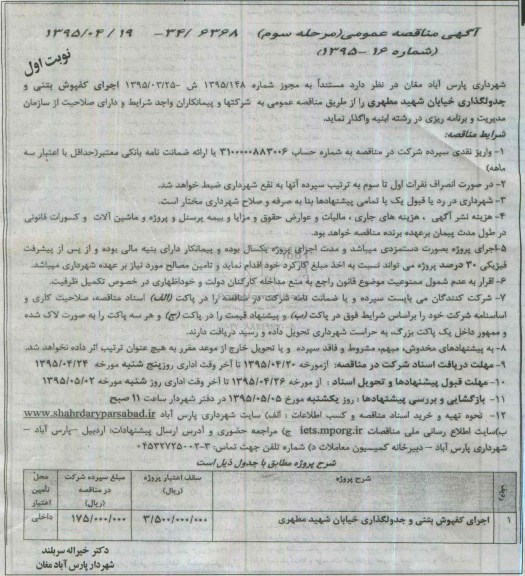 آگهی مناقصه عمومی(مرحله سوم) ۶۳۶۸ /۳۴- ۱۳۹۵/۰۴/۱۹
(شماره ۱۶ -۱۳۹۵)
نوبت اول
شهرداری پارس آباد مغان در نظر دارد مستنداً به مجوز شماره ۱۳۹۵/۱۴۸ ش -۱۳۹۵/۰۳/۲۵ اجرای کفپوش بتنی و
جدولگذاری خیابان شهید مطهری را از طریق مناقصه عمومی به شرکتها و پیمانکاران واجد شرایط و دارای صلاحیت از سازمان
مدیریت و برنامه ریزی در رشته ابنیه واگذار نماید.
شرایط مناقصه:
۱- واریز نقدی سپرده شرکت در مناقصه به شماره حساب ۳۱۰۰۰۰۰۸۸۳۰۰۶ یا ارائه ضمانت نامه بانکی معتبر(حداقل با اعتبار سه
ماهه)
۲- در صورت انصراف نفرات اول تا سوم به ترتیب سپرده آنها به نفع شهرداری ضبط خواهد شد.
۳- شهرداری در رد یا قبول یک یا تمامی پیشنهادها بنا به صرفه و صلاح شهرداری مختار است.
۴- هزینه نشر آگهی ، هزینه های جاری ، مالیات و عوارض حقوق و مزایا و بیمه پرسنل و پروژه و ماشین آلات و کسورات قانونی
در طول مدت پیمان برعهده برنده مناقصه خواهد بود.
۵-اجرای پروژه بصورت دستمزدی میباشد و مدت اجرای پروژه یکسال بوده و پیمانکار دارای بنیه مالی بوده و از پس از پیشرفت
فیزیکی ۳۰ درصد پروژه می تواند نسبت به اخذ مبلغ کارکرد خود اقدام نماید و تامین مصالح مورد نیاز بر عهده شهرداری میباشد.
۶-اقرار به عدم شمول ممنوعیت موضوع قانون راجع به منع مداخله کارکنان دولت و خوداظهاری در خصوص تکمیل ظرفیت.
۷- شرکت کنندگان می بایست سپرده و یا ضمانت نامه شرکت در مناقصه را در پاکت (الف) اسناد مناقصه، صلاحیت کاری و
اساسنامه شرکت خود را براساس شرایط فوق در پاکت (ب) و پیشنهاد قیمت را در پاکت (ج) و هر سه پاکت را به صورت لاک شده
و ممهور داخل یک پاکت بزرگ، به حراست شهرداری تحویل داده و رسید دریافت دارند.
۸- به پیشنهادهای مخدوش، مبهم، مشروط و فاقد سپرده و یا تحویل خارج از موعد مقرر به هیچ عنوان ترتیب اثر داده نخواهد شد.
۹- مهلت دریافت اسناد شرکت در مناقصه: ازمورخه ۱۳۹۵/۰۴/۲۰ تا آخر وقت اداری روزپنج شنبه مورخه ۱۳۹۵/۰۴/۲۴
۱۰- مهلت قبول پیشنهادها و تحویل اسناد : از مورخه ۱۳۹۵/۰۴/۲۶ تا آخر وقت اداری روز شنبه مورخه ۱۳۹۵/۰۵/۰۲
۱۱- بازگشایی و بررسی پیشنهادها : روز یکشنبه مورخ ۱۳۹۵/۰۵/۰۵ در دفتر شهردار ساعت ۱۱ صبح
۱۲- نحوه تهیه و خرید اسناد مناقصه و کسب اطلاعات : الف) سایت شهرداری پارس آباد www.shahrdaryparsabad.ir
ب)سایت اطلاع رسانی ملی مناقصات iets.mporg.ir ج) مراجعه حضوری و آدرس ارسال پیشنهادات: اردبیل –پارس آباد –
شهرداری پارس آباد – دبیرخانه کمیسیون معاملات د) شماره تلفن جهت تماس: ۳-۰۴۵۳۲۷۲۵۰۰۲
شرح پروژه مطابق با جدول ذیل است
ردیف شرح پروژه سقف اعتبار پروژه (ریال) مبلغ سپرده شرکت در مناقصه (ریال) محل تأمین اعتبار
۱ اجرای کفپوش بتنی و جدولگذاری خیابان شهید مطهری ۳/۵۰۰/۰۰۰/۰۰۰ ۱۷۵/۰۰۰/۰۰۰ داخلی
دکتر خیراله سربلند
شهردار پارس آباد مغان